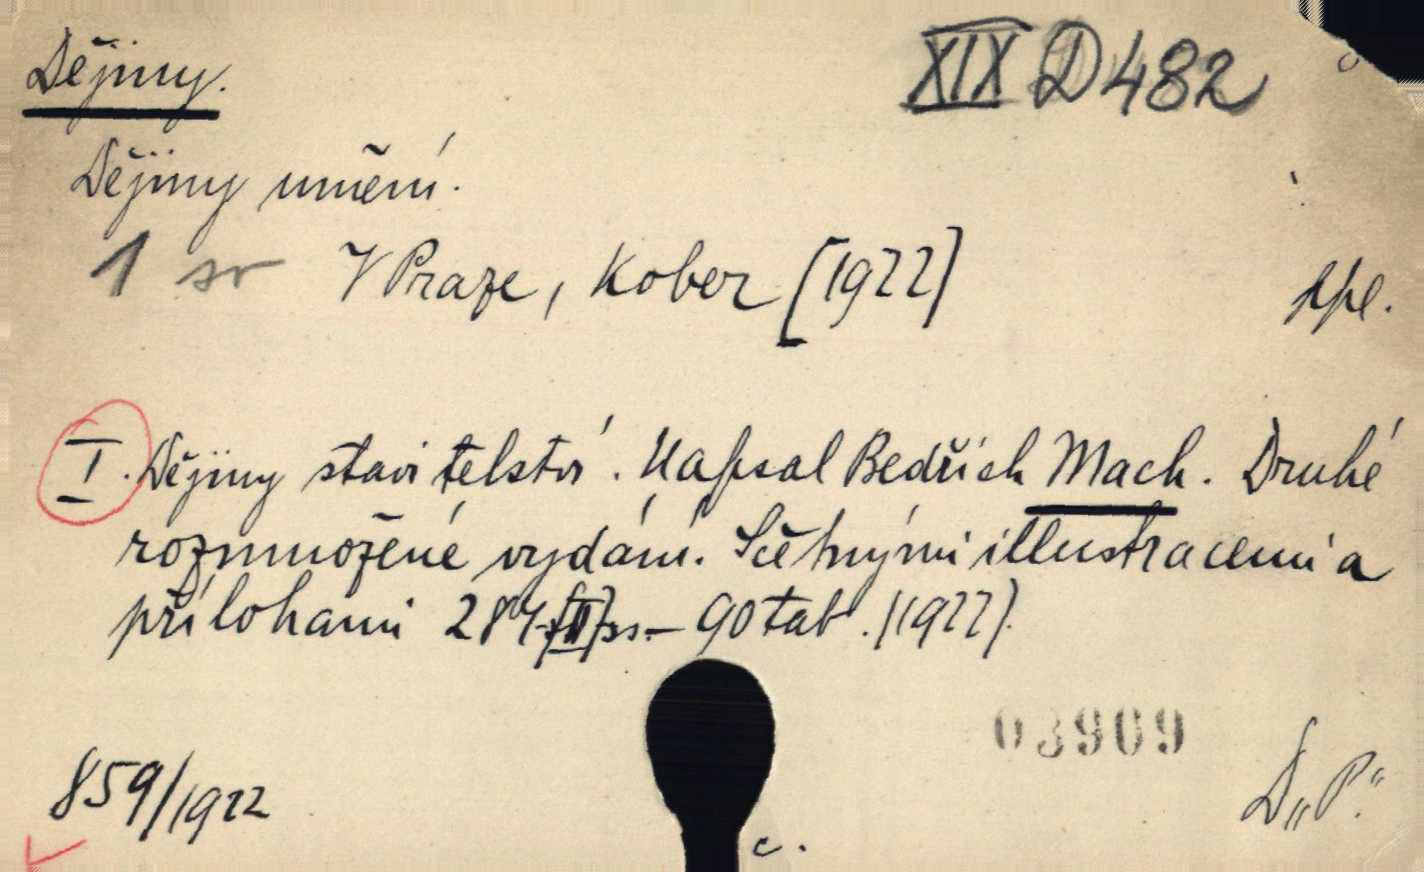 Dějiny. XIX D 482
Dějiny umění.
1 sv V Praze, Kober [1922]
I. Dějiny stavitelství. Napsal Bedřich Mach. Druhé
rozmnožené vydání. Sčetnými illustracemi a
přílohami 284 [II] ss. — 90 tab. (1922).
03909
859/1922
D„P.“
c.